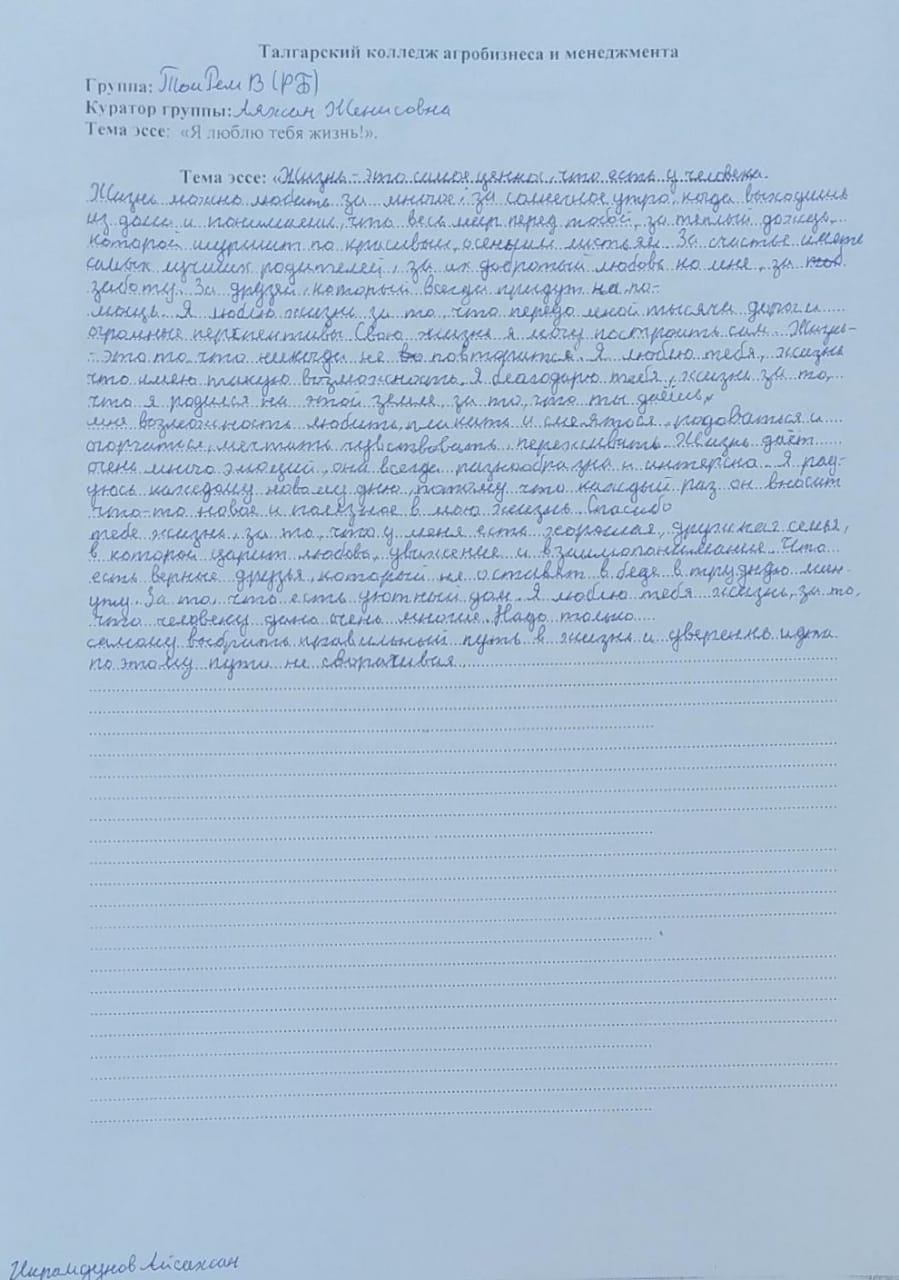 Талгарский колледж агробизнеса и менеджмента
Группа: ТоиРем В (РБ)
Куратор группы: Ляжан Женисовна
Тема эссе: «Я люблю тебя жизнь!».
Тема эссе: «Жизнь - это самое ценное, что есть у человека.
Жизнь можно любить за многое: за солнечное утро, когда выходишь
из дома и понимаешь, что весь мир перед тобой, за тёплый дождь,
которой шуршит по красивым осенним листьям. За счастье иметь
самых лучших родителей, за их добротый любовь ко мне, за
заботу. За друзей, который всегда придут на по-
мощь. Я люблю жизнь за то, что передо мной тысячи дорог и
огромные перспективы. Свою жизнь я могу построить сам. Жизнь-
- это то, что никогда не повторится. Я люблю тебя, жизнь
что имею такую возможность. Я благодарю тебя, жизнь за то,
что я родился на этой земле, за то, что ты даёшь
мне возможность любить, плакать и смеяться, радоваться и
огорчаться, мечтать, чувствовать, переживать. Жизнь даёт
очень много эмоций, она всегда разнообразна и интерсна. Я рад-
уюсь каждому новому дню, потому что каждый раз он вносит
что-то новое и полезное в мою жизнь. Спасибо
тебе жизнь, за то, что у меня есть хорошая, дружная семья,
в которой царит любовь, уважение и взаимопонимание. Что
есть верные друзья, который не оставят в беде в трудную мин-
уту. За то, что есть уютный дом. Я люблю тебя жизнь, за то,
что человеку дано очень многое. Надо только
самому выбрать правильный путь в жизни и уверенно идти
по этому пути не сворачивая.
Икрамдунов Айсахан